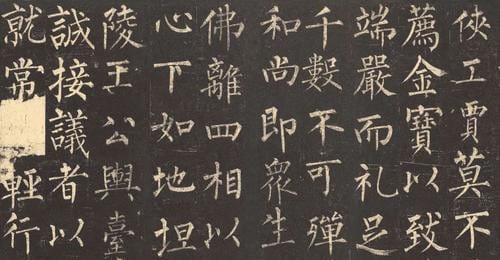 俠工賈莫不
薦金寶以致
端嚴而礼足
千數不可殫
和尚即衆生
佛離四相以
心下如地坦
陵王公輿臺
誠接議者以
就常輕行